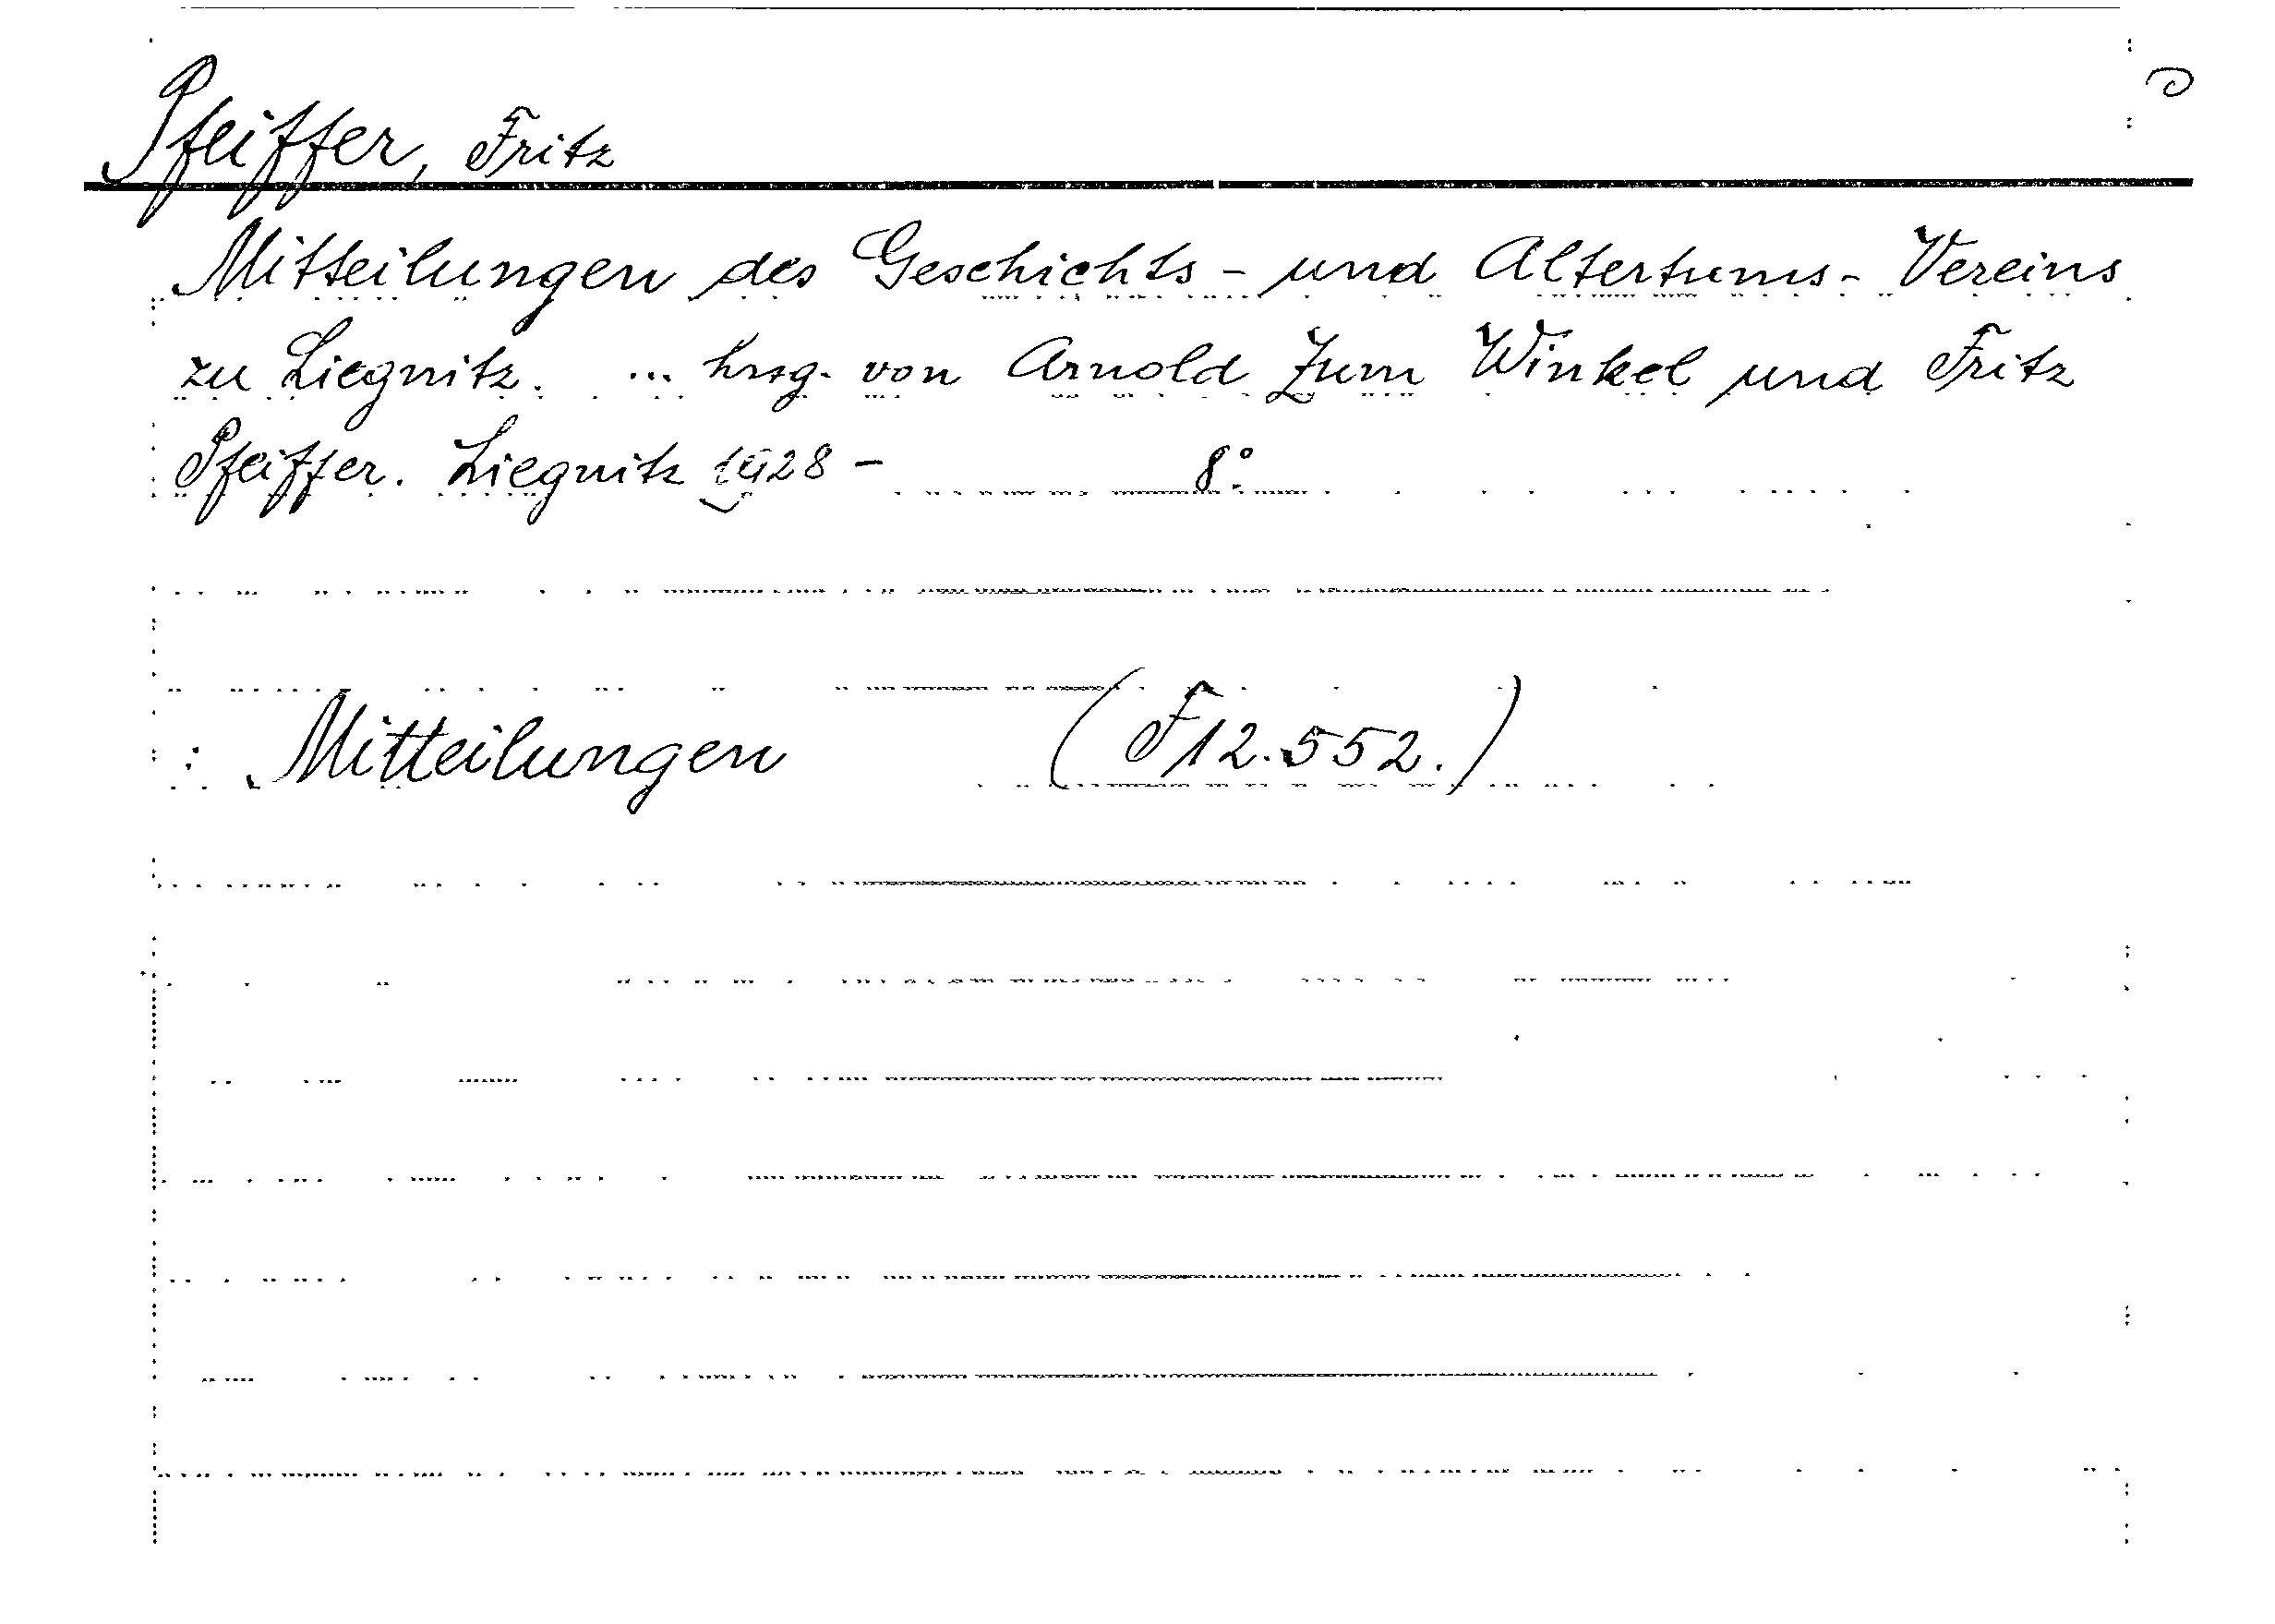 Pfeiffer, Fritz
Mitteilungen des Geschichts- und Altertums-Vereins
zu Liegnitz. ... hrsg. von Arnold Zum Winkel und Fritz
Pfeiffer. Liegnitz 1928 - 8°.
: Mitteilungen (F 12.552.)